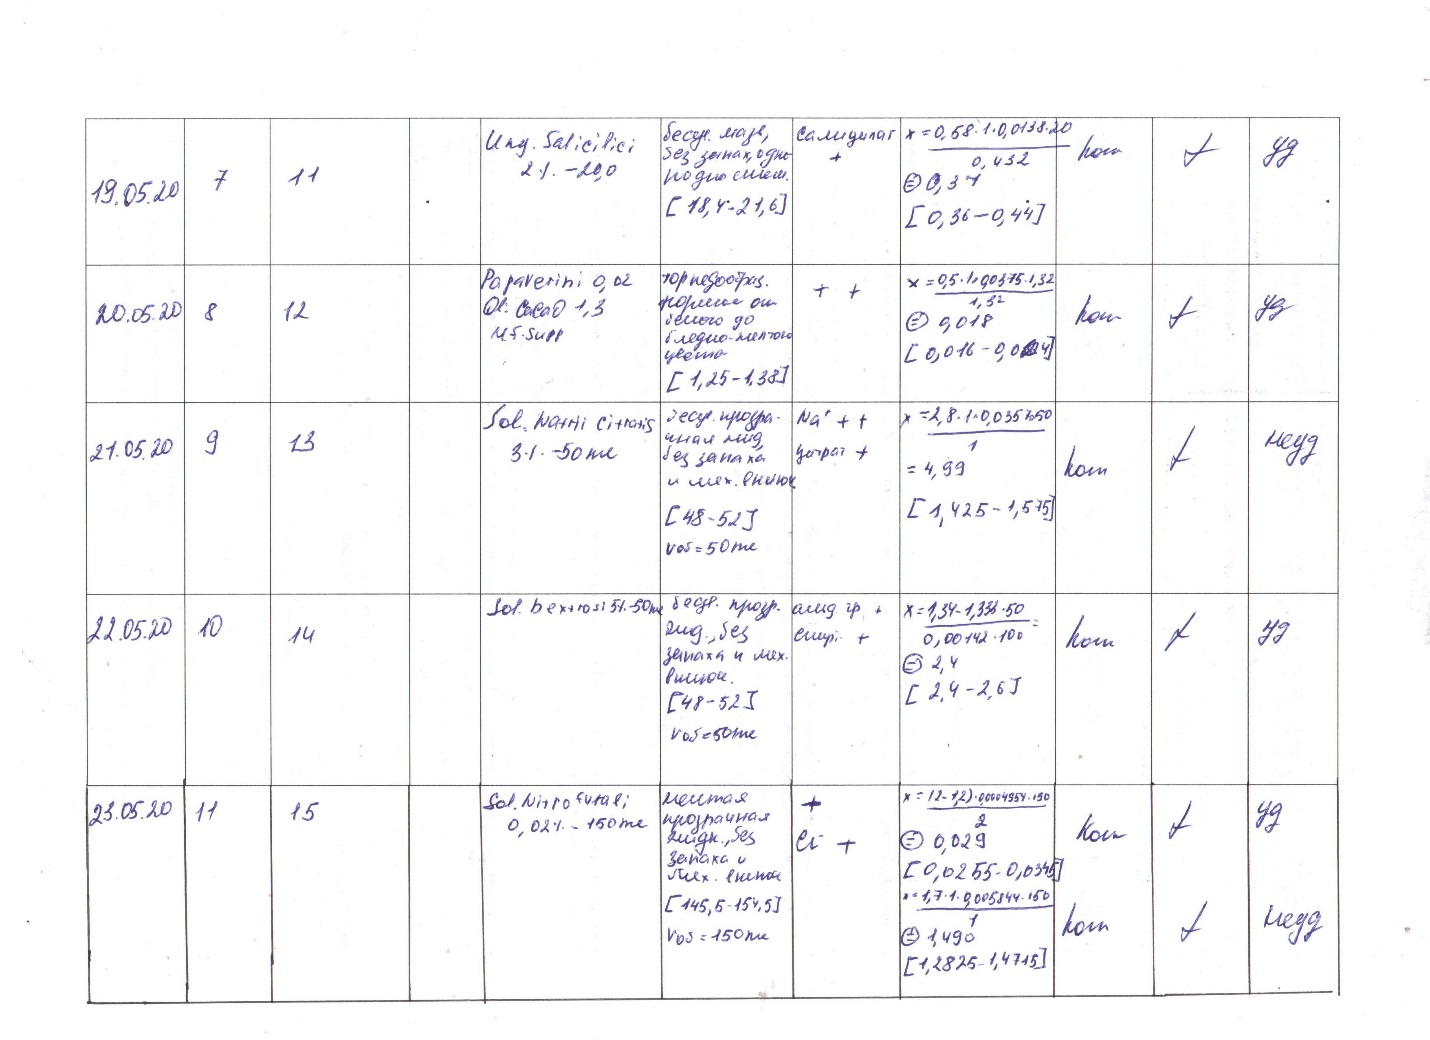 19.05.20
7
11
Ung. Salicilici
2% - 20,0
бесцв. мазь,
без запах, одно
родно смеш.
[18,4-21,6]
салицилат
+
x = 0,68·1·0,0138·20
0,432
= 0,37
[0,36-0,44]
+
уд
20.05.20
8
12
Papaverini 0,02
Ol. Cacao 1,3
M.f. Supp
торпедообраз.
от
белого до
бледно-желтого
цвета
[1,25-1,38]
+ +
x = 0,5·1·0,00375·1,32
1,32
= 0,018
+
уд
21.05.20
9
13
Sol. Natrii Citratis
3% - 50 ml
бесцв. прозра-
чная жид,
без запаха
и мех. включ
[48-52]
Vоб = 50 ml
Na⁺ + +
цитрат +
x = 2,8·1·0,0357·50
1
= 4,99
[1,425-1,575]
+
неуд
22.05.20
10
14
Sol. Dextrosi 5% - 50 ml
бесцв. прозр.
жид., без
запаха и мех.
включ.
[48-52]
Vоб = 50 ml
+
+
x = 1,34-1,333·50
0,00142·100 =
= 2,4
[2,4-2,6]
+
уд
23.05.20
11
15
Sol. Nitrofurali
0,02% - 150 ml
желтая
прозрачная
жидк., без
запаха и
мех. включ
[145,5-154,5]
Vоб = 150 ml
+
Cl⁻ +
x = (2-1,2)·0,0004954·150
2
= 0,029
[0,0255-0,0345]
x = 1,7·1·0,005844·150
1
= 1,490
[1,2825-1,4715]
+
уд
+
неуд